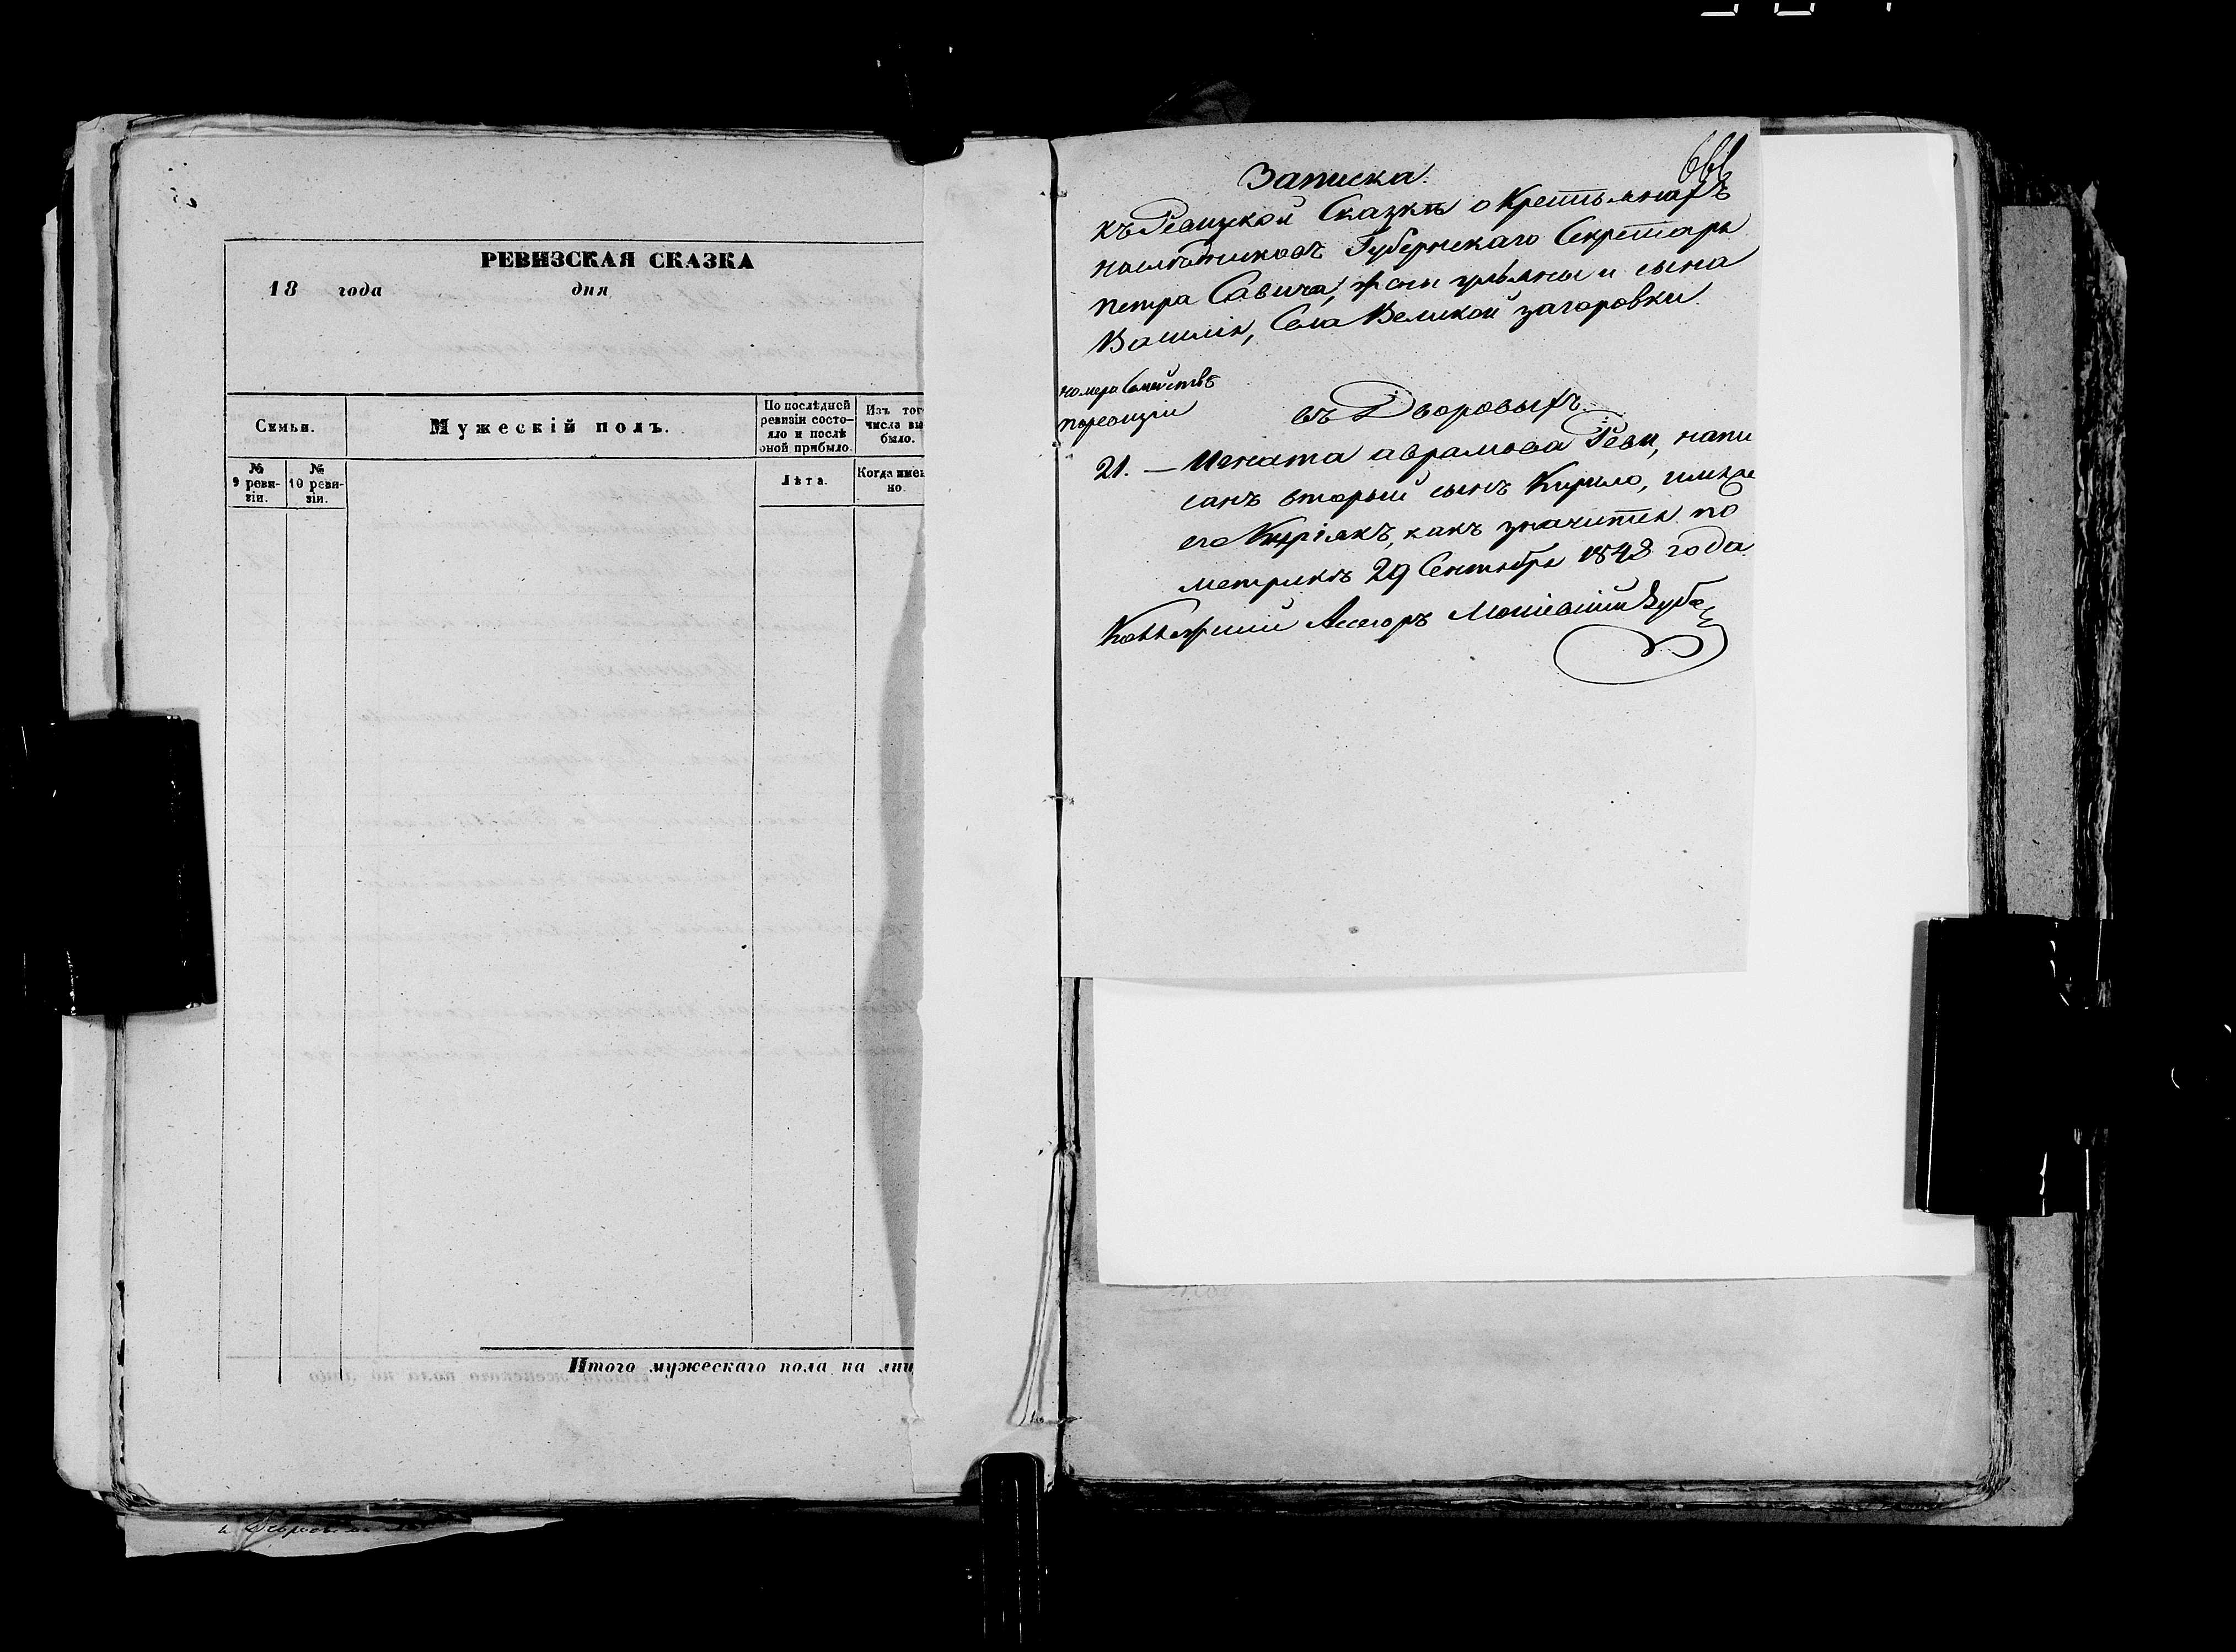 РЕВИЗСКАЯ СКАЗКА
18 года дня
Семьи.
Мужескій полъ.
По послѣдней
ревизіи состо-
яло и послѣ
оной прибыло.
Изъ того
числа вы
было.
№
9 реви-
зіи.
№
10 реви-
зіи.
Лѣта.
Когда имен
но.
Итого мужескаго пола на лиц
Записка
къ Ревизкой Сказкѣ о Крестьянахъ
наслѣдниковъ Губернскаго Секретаря
петра Савича, жены ульяны и сына
Василія, Села Великой загоровки
номера Семействъ
поревизіи
въ Дворовыхъ
21. — Игната аврамова Реви, напи
санъ вторый сынъ Кирило, имя
его Киріякъ, какъ значится по
метрикѣ 29 Сентября 1848 года
Коллежский Асесоръ